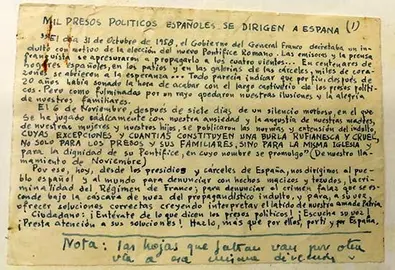 MIL PRESOS POLITICOS ESPAÑOLES SE DIRIGEN A ESPAÑA (1)
"El día 31 de Octubre de 1958, el Gobierno del General Franco decretaba un in-
dulto con motivo de la elección del nuevo Pontífice Romano. Las emisoras y la prensa
franquista se apresuraron a propagarlo a los cuatro vientos... En centenares de
hogares españoles, en los patios y en las galerías de las cárceles, miles de cora-
zones se abrieron a la esperanza... Todo parecía indicar que por fin, después de
años había sonado la hora de acabar con el largo cautiverio de los presos políti-
cos. Pero como fulminadas por un rayo quedaron nuestras ilusiones y la alegría
de nuestros familiares.
El 6 de Noviembre, después de siete días de un silencio morboso, en el que
se ha jugado sádicamente con nuestra ansiedad y la angustia de nuestras madres,
de nuestras mujeres y nuestros hijos, se publicaron las normas y extensión del indulto
CUYAS EXCEPCIONES Y CUANTIAS CONSTITUYEN UNA BURLA RUFIANESCA Y CRUEL,
NO SOLO PARA LOS PRESOS Y SUS FAMILIARES, SINO PARA LA MISMA IGLESIA Y
para la dignidad de su Pontífice, en cuyo nombre se promulgó" (De nuestro lla-
mamiento de Noviembre)
Por eso, hoy, desde los presidios y cárceles de España, nos dirigimos al pue-
blo español y al mundo para denunciar con hechos macizos y tercos, la cri-
minalidad del Régimen de Franco; para denunciar al crimen falaz que se es-
conde bajo la cáscara de nuez del propagandístico indulto, y para, a su vez
ofrecer soluciones correctas creyendo interpretar el latido de nuestra amada Patria.
Ciudadano: ¡Entérate de lo que dicen los presos políticos! ¡Escucha su voz!
¡Presta atención a sus soluciones! Hazlo, más que por ellos, por ti y por España.
Nota: las hojas que faltan van por otra
vía a esa misma